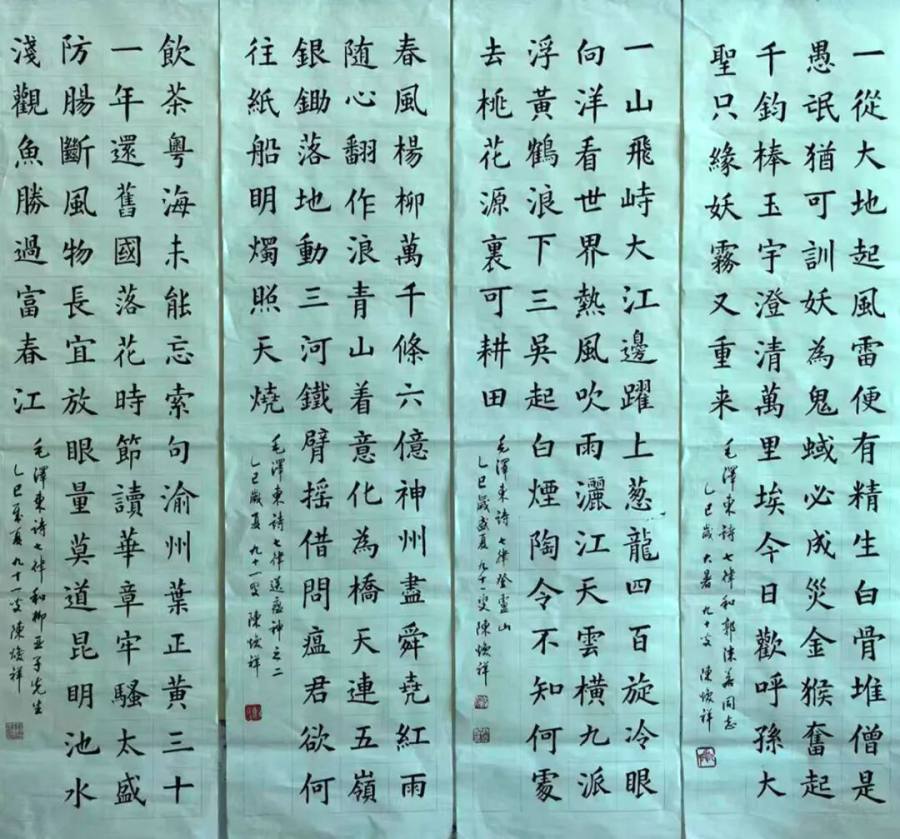 一從大地起風雷便有精生白骨堆僧是
愚氓猶可訓妖為鬼蜮必成災金猴奮起
千鈞棒玉宇澄清萬里埃今日歡呼孫大
聖只緣妖霧又重來
毛澤東詩七律和郭沫若同志
乙巳歲大暑九十叟陳祥
一山飛峙大江邊躍上葱龍四百旋冷眼
向洋看世界熱風吹雨灑江天雲橫九派
浮黃鶴浪下三吳起白煙陶令不知何處
去桃花源裏可耕田
毛澤東詩七律登廬山
乙巳歲盛夏九十一叟陳祥
春風楊柳萬千條六億神州盡舜堯紅雨
随心翻作浪青山着意化為橋天連五嶺
銀鋤落地動三河鐵臂摇借問瘟君欲何
往紙船明燭照天燒
毛澤東詩七律送瘟神之二
乙巳歲夏九十一叟陳祥
飲茶粵海未能忘索句渝州葉正黄三十
一年還舊國落花時節讀華章牢騷太盛
防腸斷風物長宜放眼量莫道昆明池水
淺觀魚勝過富春江
毛澤東詩七律和柳亞子先生
乙巳夏九十一叟陳祥